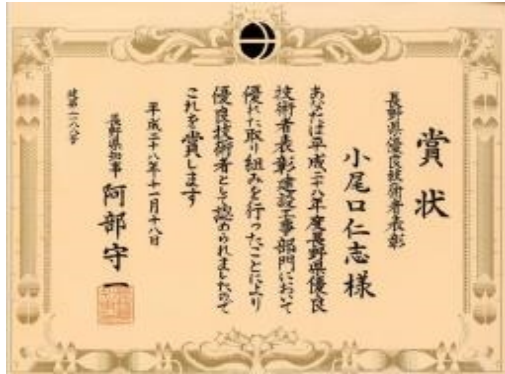 賞状
長野県優良技術者表彰
小尾口仁志様
あなたは平成二十八年度長野県優良
技術者表彰建設工事部門において
優れた取り組みを行ったことにより
優良技術者として認められましたので
これを賞します
平成二十八年十一月十八日
長野県知事 阿部守一